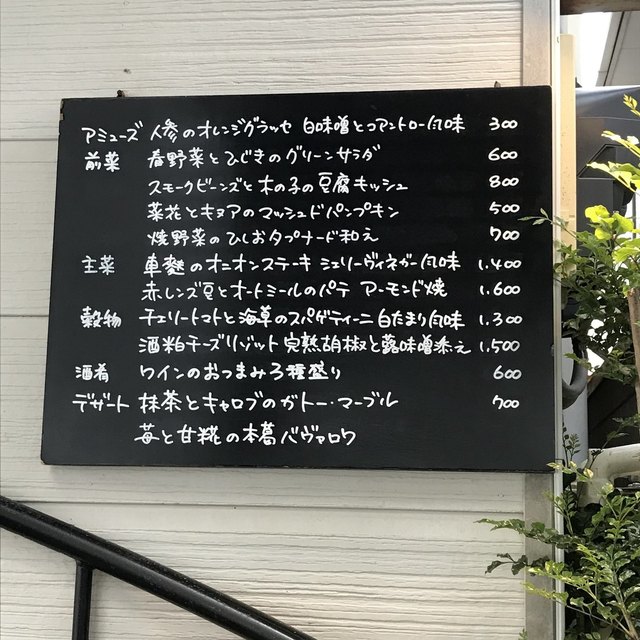 アミューズ 人参のオレンジグラッセ 白味噌とコアントロー風味 300
前菜 春野菜とひじきのグリーンサラダ 600
スモークビーンズと木の子の豆腐キッシュ 800
菜花とキヌアのマッシュドパンプキン 500
焼野菜のひしおタプナード和え 700
主菜 車麩のオニオンステーキ シェリーヴィネガー風味 1.400
赤レンズ豆とオートミールのパテ アーモンド焼 1.600
穀物 チェリートマトと海草のスパゲティーニ 白たまり風味 1.300
酒粕チーズリゾット 完熟胡椒と蕗味噌添え 1.500
酒肴 ワインのおつまみ3種盛り 600
デザート 抹茶とキャロブのガトー・マーブル 700
苺と甘糀の本葛ババァロワ